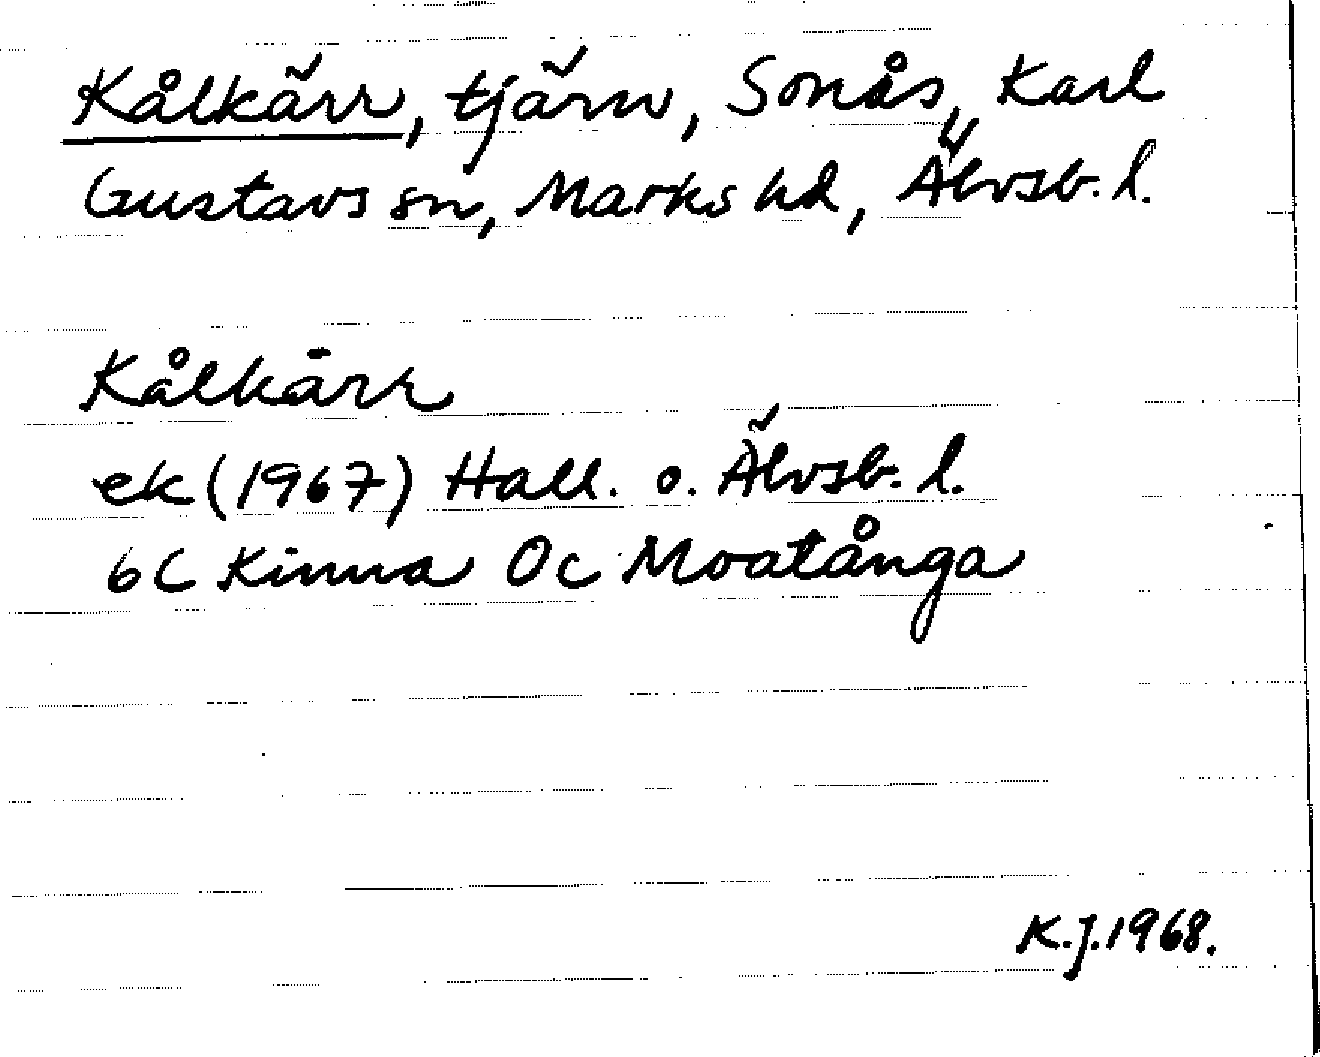 Kålkärr, tjärn, Sonås, Karl
Gustavs sn, Marks hd, Älvsb. l.
Kålkärr
ek (1967) Hall. o. Älvsb. l.
6C Kinna Oc Moatånga
K.J. 1968.